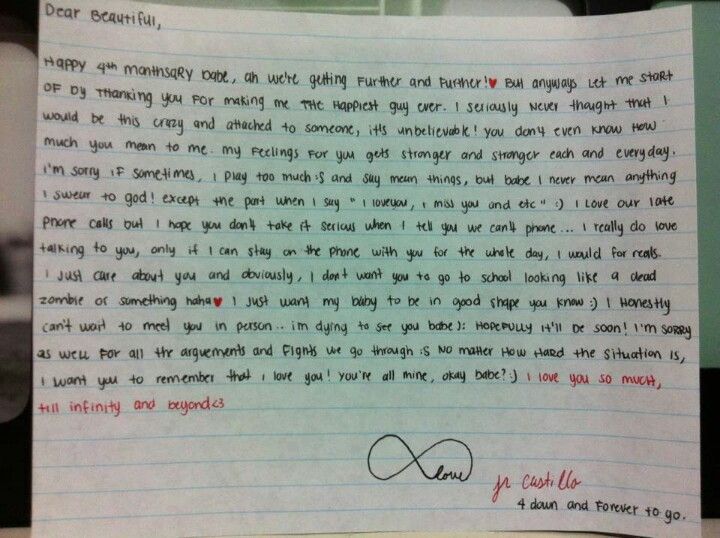 Dear Beautiful,
Happy 4th monthsary babe, ah we're getting further and further!♥ But anyways let me start
of by thanking you for making me THE Happiest guy ever. I seriously never thought that I
would be this crazy and attached to someone, it's unbelievable! you don't even know how
much you mean to me. my feelings for you gets stronger and stronger each and everyday.
i'm sorry if sometimes, i play too much :s and say mean things, but babe I never mean anything
I swear to god! except the part when I say "I loveyou, I miss you and etc" :) I Love our late
phone calls but I hope you don't take it serious when I tell you we can't phone... I really do love
talking to you, only if I can stay on the phone with you for the whole day, I would for reals.
I just care about you and obviously, I don't want you to go to school looking like a dead
zombie or something haha♥ I just want my baby to be in good shape you know :) I Honestly
can't wait to meet you in person.. im dying to see you babe ): Hopefully it'll be soon! I'm sorry
as well for all the arguements and fights we go through :s No matter How Hard the situation is,
I want you to remember that I love you! you're all mine, okay babe? :) I love you so much,
till infinity and beyond<3
love
jr castillo
4 down and forever to go.